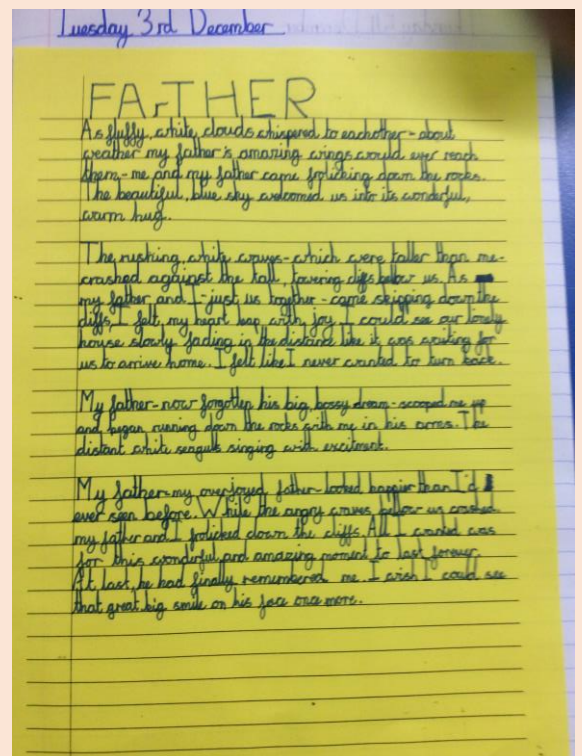 Tuesday 3rd December
FATHER
As fluffy, white, clouds whispered to eachother - about
weather my father's amazing wings would ever reach
them - me and my father came frolicking down the rocks.
The beautiful, blue sky welcomed us into its wonderful,
warm hug.
The rushing, white waves - which were taller than me -
crashed against the tall, towering cliffs below us. As
my father and I - just us together - came skipping down the
cliffs, I felt my heart leap with joy. I could see our lonely
house slowly fading in the distance like it was waiting for
us to arrive home. I felt like I never wanted to turn back.
My father - now forgotten his big, bossy dream - scooped me up
and began running down the rocks with me in his arms. The
distant white seagulls singing with excitment.
My father - my overjoyed father - looked happier than I'd
ever seen before. While the angry waves bellow us crashed
my father and I frolicked down the cliffs. All I wanted was
for this wonderful and amazing moment to last forever.
At last, he had finally remembered me. I wish I could see
that great, big smile on his face once more.